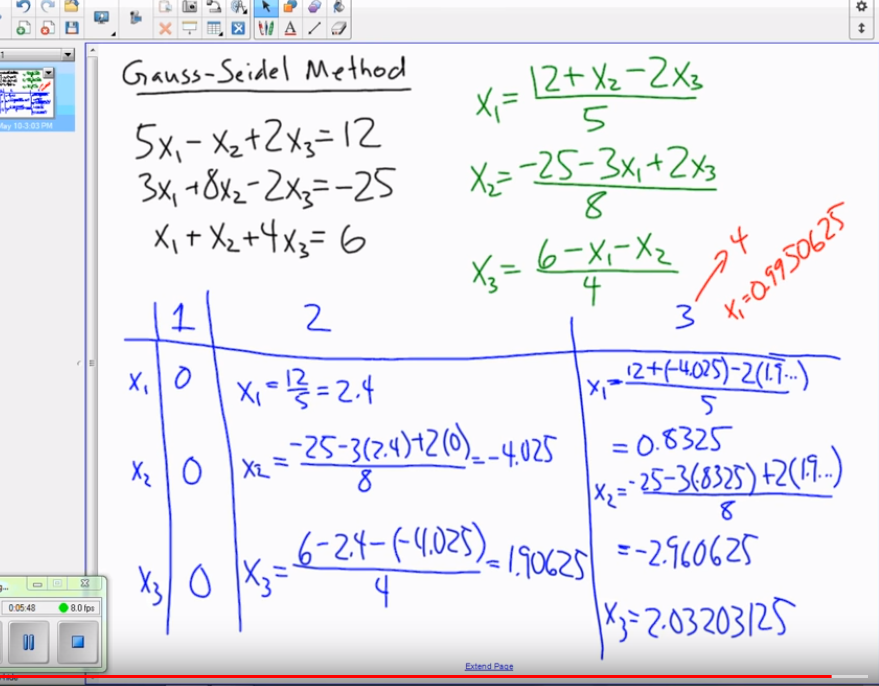 1
May 10-3:03 PM
Gauss-Seidel Method
5x₁-x₂+2x₃=12
3x₁+8x₂-2x₃=-25
x₁+x₂+4x₃=6
x₁=(12+x₂-2x₃)/5
x₂=(-25-3x₁+2x₃)/8
x₃=(6-x₁-x₂)/4
4
x₁=0.9950625
1 2 3
x₁ 0 x₁=12/5=2.4
x₁=(12+(-4.025)-2(1.9...))/5
=0.8325
x₂ 0 x₂=(-25-3(2.4)+2(0))/8=-4.025
x₂=(-25-3(.8325)+2(1.9...))/8
=-2.960625
x₃ 0 x₃=(6-2.4-(-4.025))/4=1.90625
x₃=2.03203125
0:05:48 8.0 fps
Extend Page